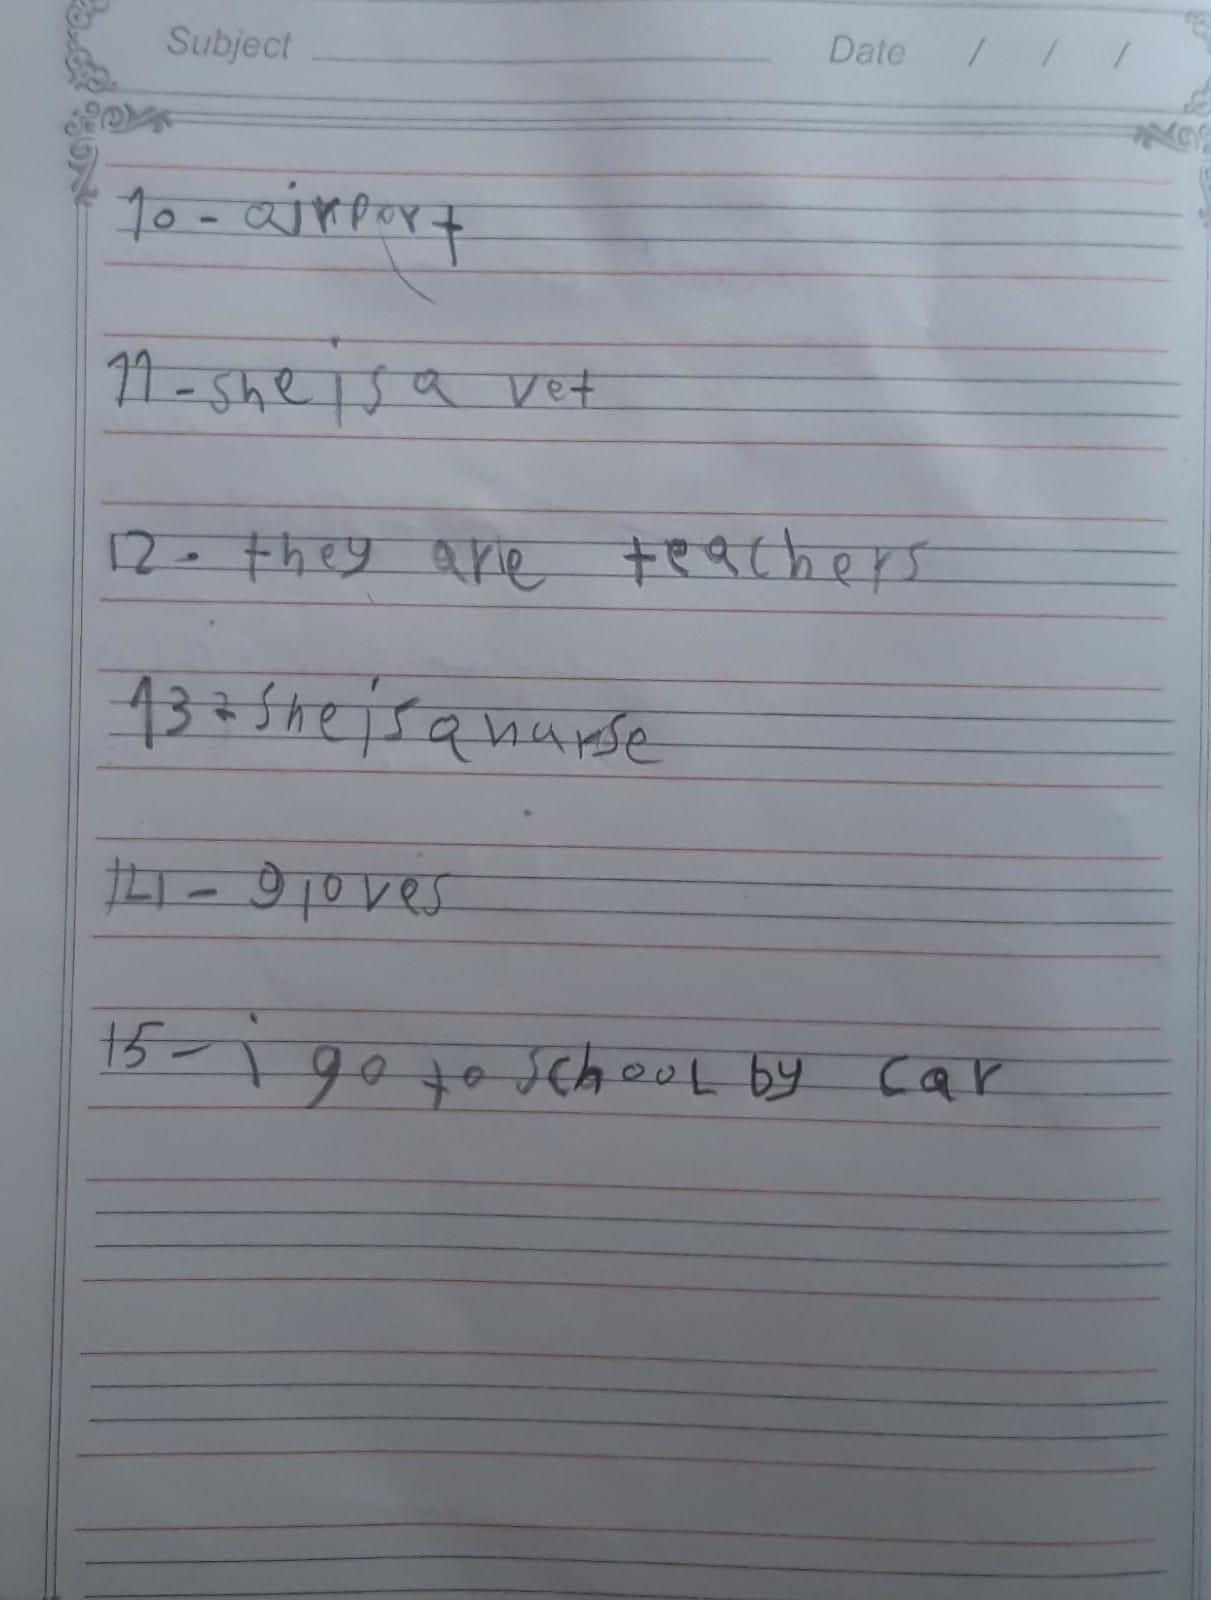 Subject Date / / /
10 - airport
11 - she is a vet
12 - they are teachers
13 - she is a nurse
14 - gloves
15 - i go to school by car